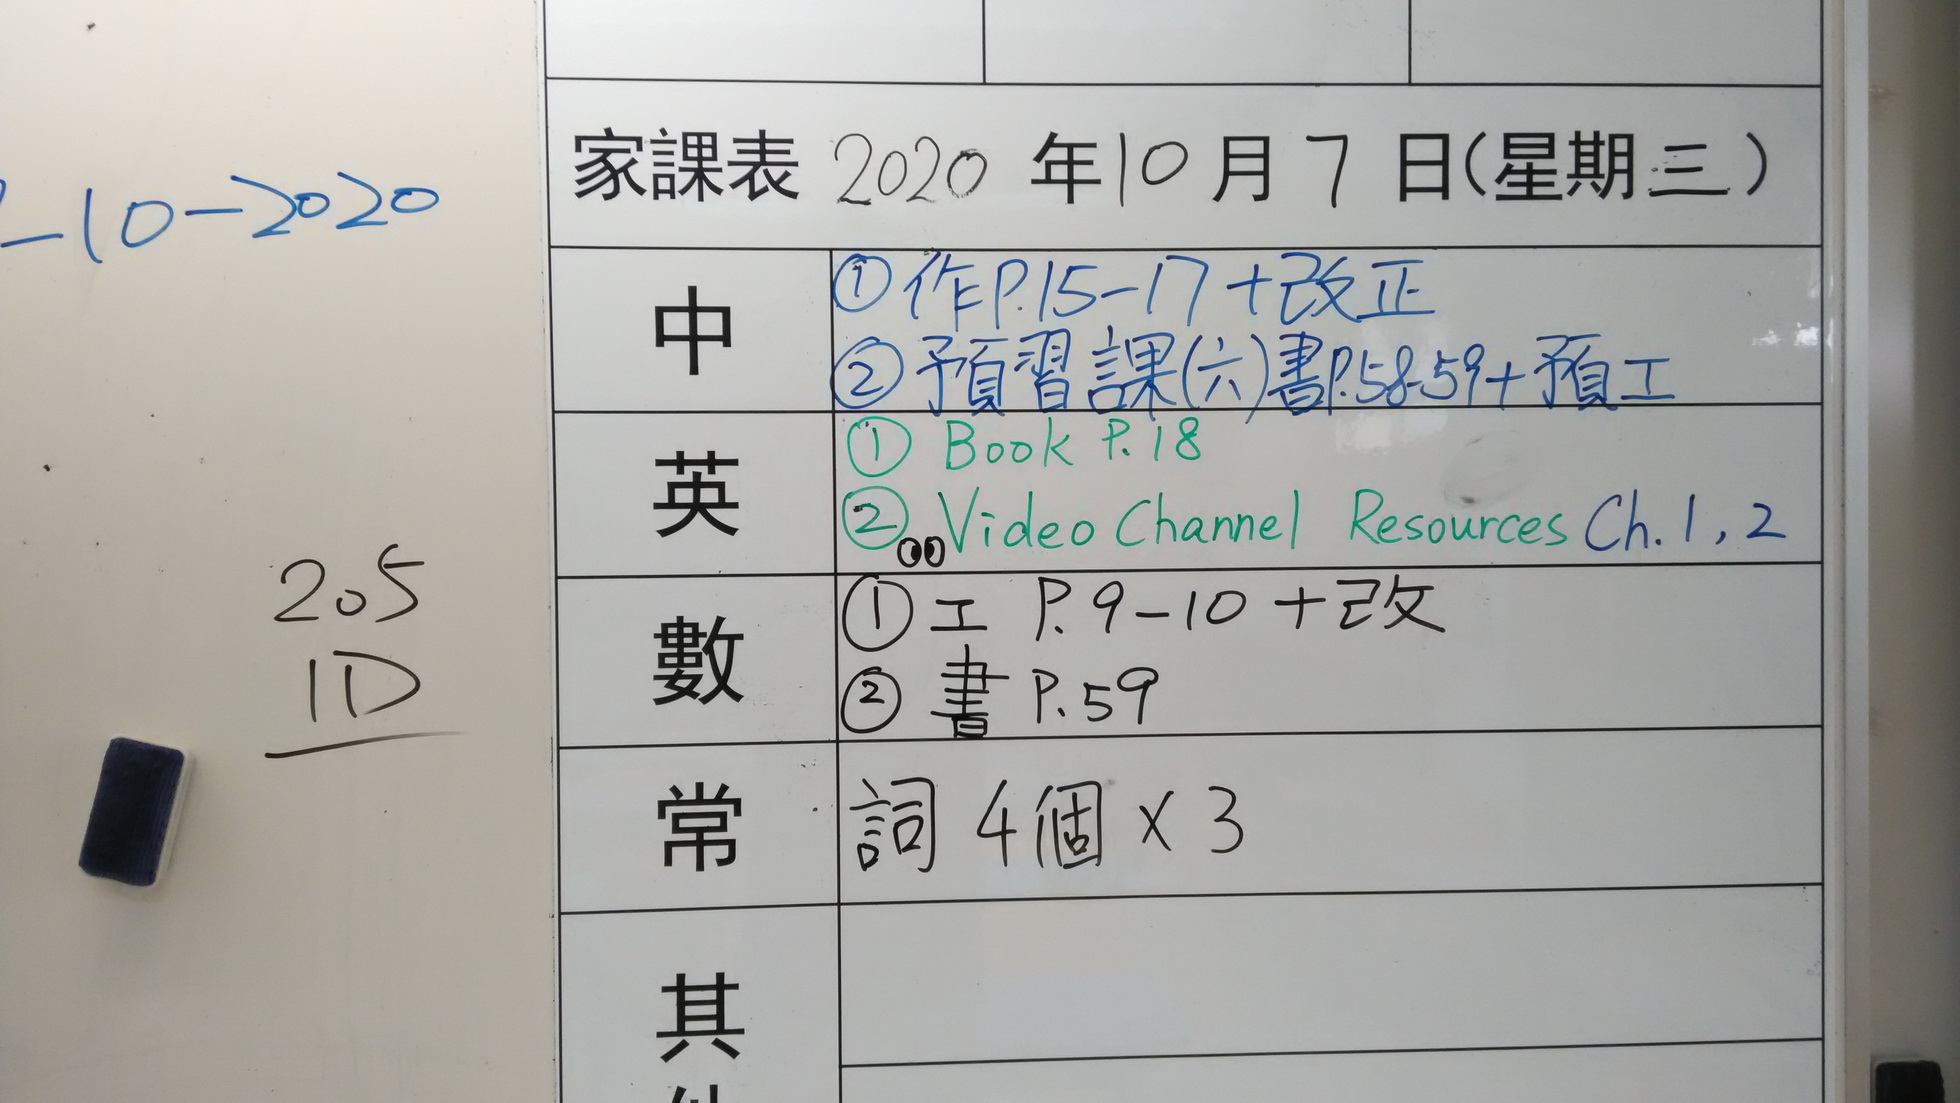 -10-2020
205
1D
家課表 2020 年 10 月 7 日(星期三)
中
① 作P.15-17+改正
② 預習課(六)書P.58-59+預工
英
① Book P.18
② Video Channel Resources Ch.1,2
數
① 工 P.9-10+改
② 書 P.59
常
詞 4個 x 3
其